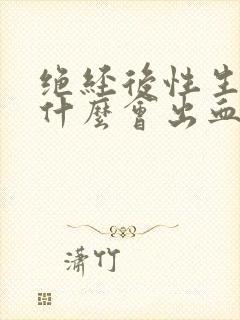 绝经後性生
什麼會出血
潇竹